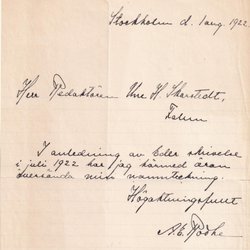 Stockholm d. 1 aug. 1922
Herr Redaktören Uno H Skarstedt,
Falun
I anledning av Eder skrivelse
i juli 1922 har jag härmed äran
översända min namnteckning.
Högaktningsfullt
A. E.